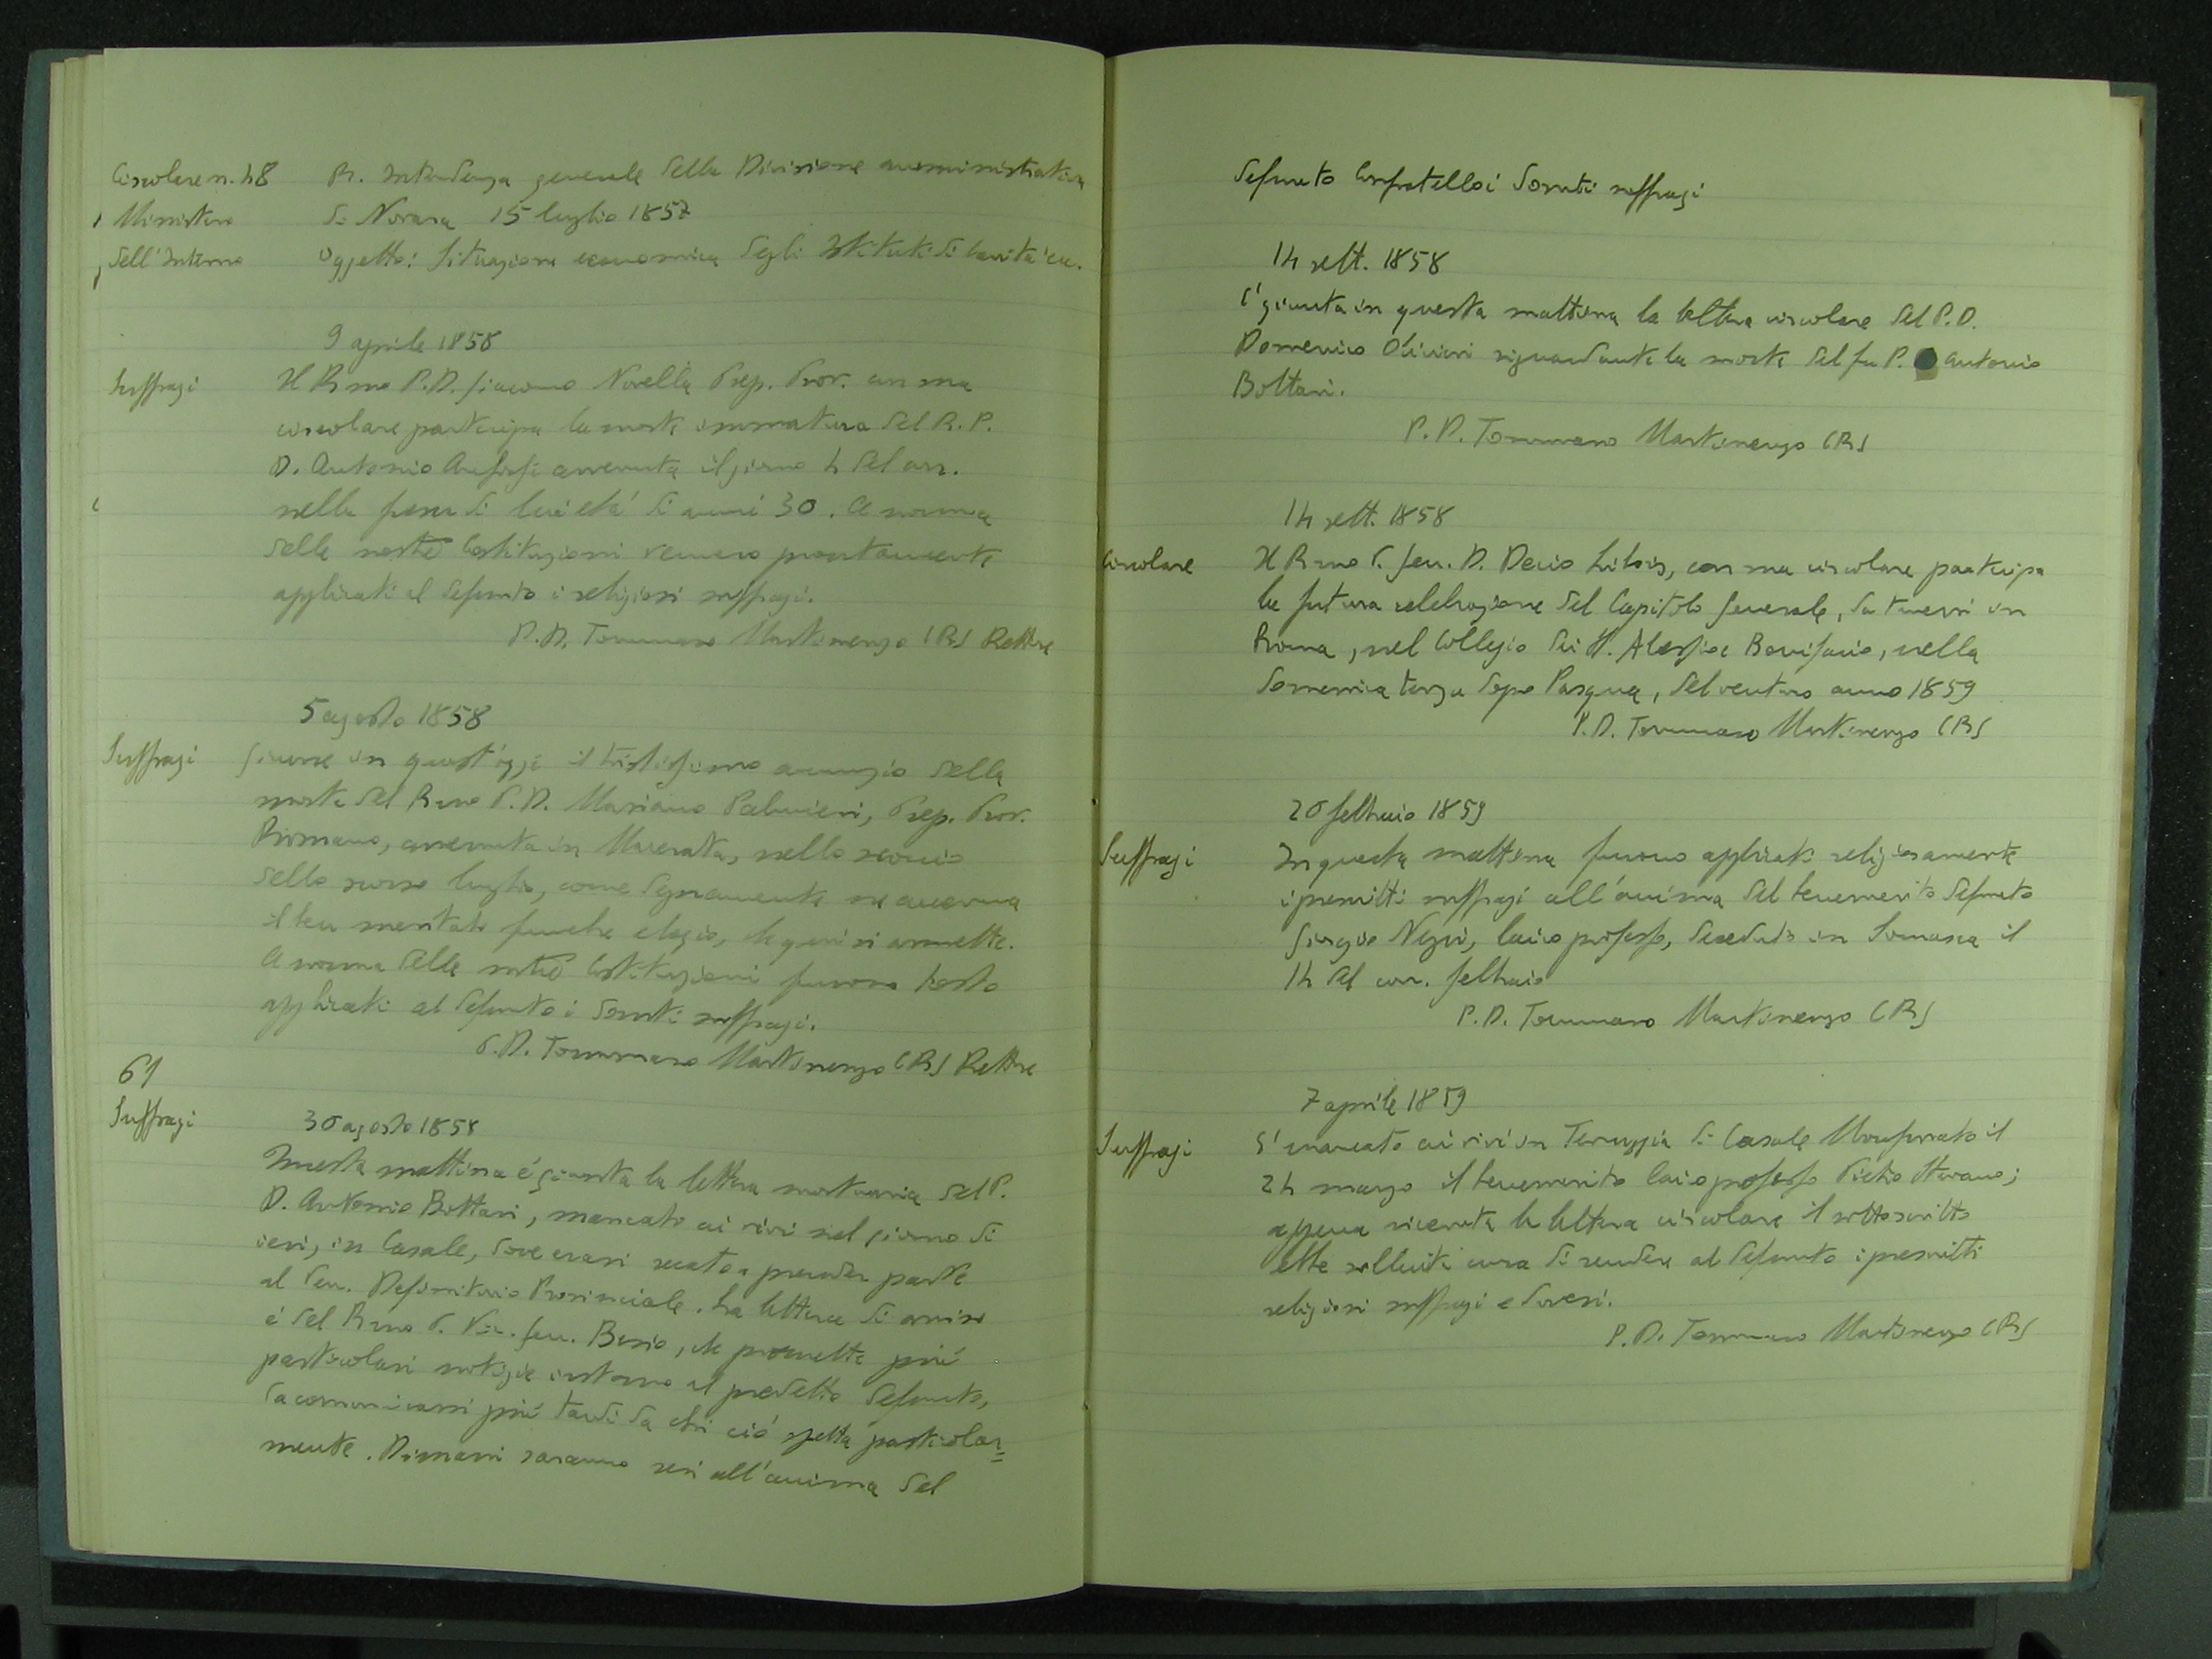 Circolare n. 48
Ministero
dell'Interno
R. Intendenza generale della Divisione amministrativa
di Novara 15 luglio 1857
Oggetto: Situazione economica degli Istituti di carità ecc.
9 aprile 1858
Suffragi
Il R.mo P.D. Giacomo Novella Prep. Prov. con sua
circolare partecipa la morte immatura del R. P.
D. Antonio avvenuta il giorno 4 del corr.
nella fresca di lui età di anni 30. A norma
delle nostre Costituzioni vennero prontamente
applicati al defunto i religiosi suffragi.
P.D. Tommaso Martinengo CRS Rettore
5 agosto 1858
Suffragi
Giunse in quest'oggi il tristissimo annunzio della
morte del R.mo P.D. Mariano Palmieri, Prep. Prov.
Romano, avvenuta in Macerata, nello scorcio
dello scorso luglio, come degnamente ne accenna
il ben meritato funebre elogio, che quivi si annette.
A norma delle nostre Costituzioni furono tosto
applicati al defunto i dovuti suffragi.
P.D. Tommaso Martinengo CRS Rettore
61
Suffragi
30 agosto 1858
Questa mattina é giunta la lettera mortuaria del P.
D. Antonio Bottari, mancato ai vivi nel giorno di
ieri, in Casale, dove erasi recato a prender parte
al Ven. Definitorio Provinciale. La lettera di avviso
é del R.mo P. Vic. Gen. Besio, che promette più
particolari notizie intorno al predetto defunto,
da comunicarsi più tardi da chi ciò spetta particolar=
mente. Dimani saranno resi all'anima del
defunto Confratello i dovuti suffragi
14 sett. 1858
É giunta in questa mattina la lettera circolare del P.D.
Domenico Olivieri riguardante la morte del fu P. Antonio
Bottari.
P.D. Tommaso Martinengo CRS
14 sett. 1858
Circolare
Il R.mo P. Gen. D. Decio Libois, con sua circolare partecipa
la futura celebrazione del Capitolo Generale, da tenersi in
Roma, nel Collegio dei SS. Alessio e Bonifacio, nella
domenica terza dopo Pasqua, del venturo anno 1859
P.D. Tommaso Martinengo CRS
20 febbraio 1859
Suffragi
In questa mattina furono applicati religiosamente
i prescritti suffragi all'anima del benemerito defunto
Giorgio Negri, laico professo, deceduto in Somasca il
14 del corr. febbraio
P.D. Tommaso Martinengo CRS
7 aprile 1859
Suffragi
É mancato ai vivi in Terruggia di Casale Monferrato il
24 marzo il benemerito laico professo Pietro Stevano;
appena ricevuta la lettera circolare il sottoscritto
ebbe sollecita cura di rendere al defunto i prescritti
religiosi suffragi e doveri.
P.D. Tommaso Martinengo CRS